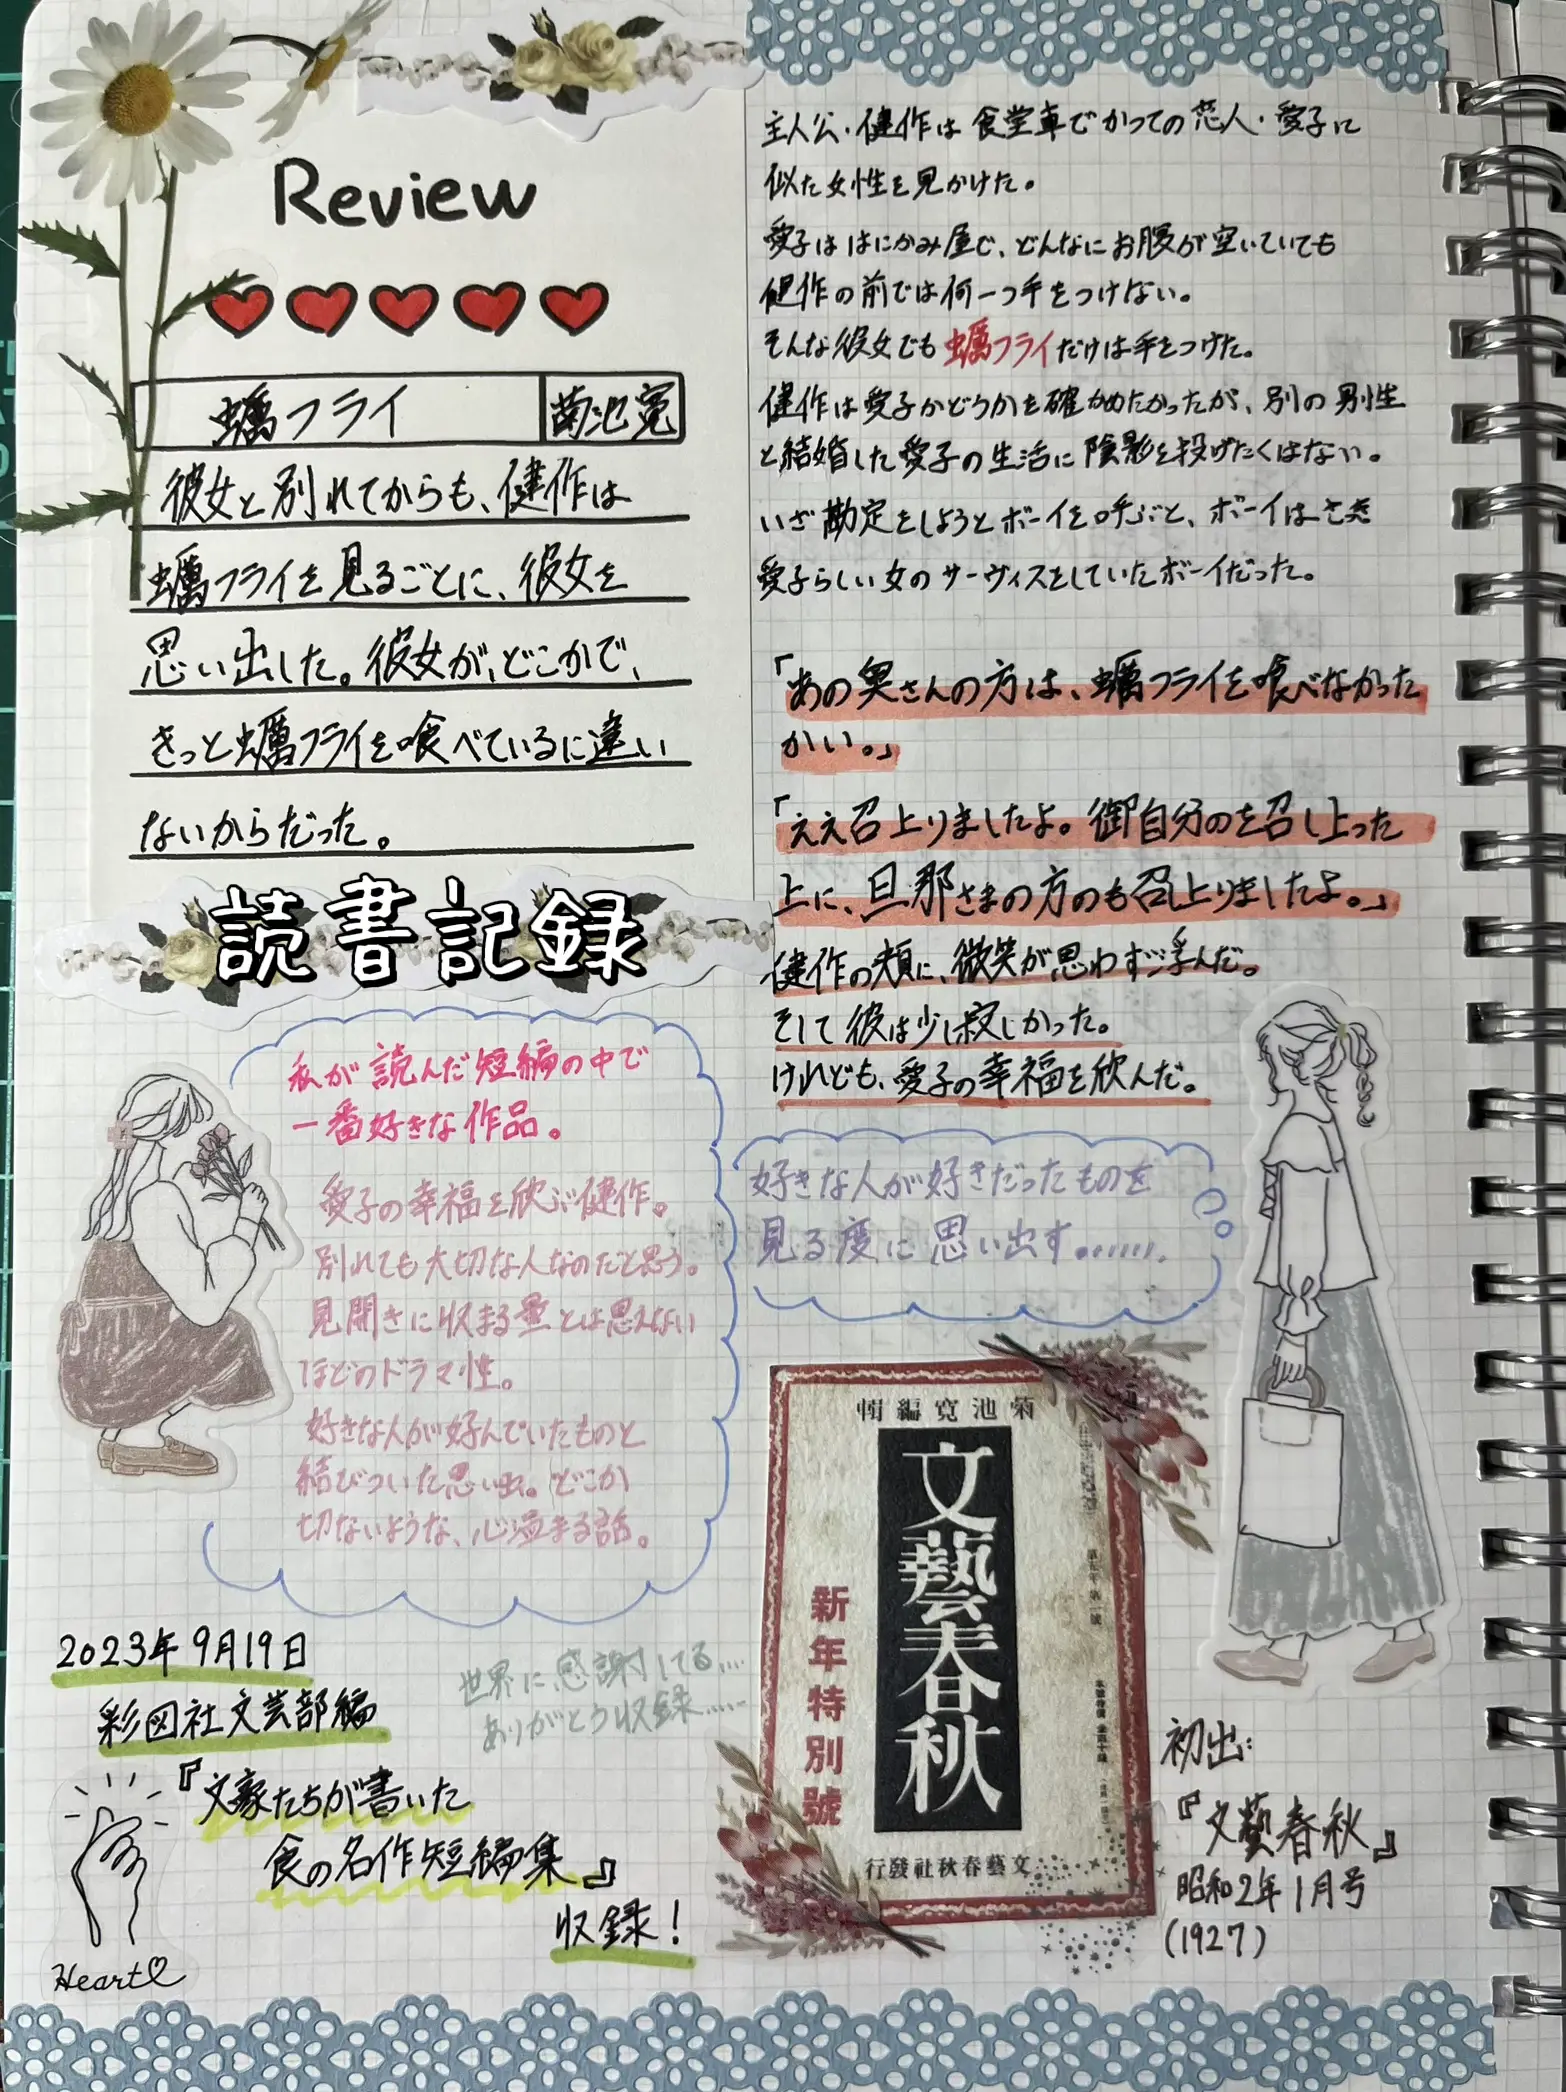 Review
蠣フライ 菊池寛
彼女と別れてからも、健作は
蠣フライを見るごとに、彼女を
思い出した。彼女が、どこかで、
きっと蠣フライを喰べているに違い
ないからだった。
読書記録
私が読んだ短編の中で
一番好きな作品。
愛子の幸福を欣ぶ健作。
別れても大切な人なのだと思う。
見開きに収まる量とは思えない
ほどのドラマ性。
好きな人が好んでいたものと
結びついた思い出。どこか
切ないような、心温まる話。
2023年9月19日
彩図社文芸部編
『文豪たちが書いた
食の名作短編集』
収録!
世界に感謝してる....
ありがとう収録.....
Heart
主人公・健作は食堂車でかつての恋人・愛子に
似た女性を見かけた。
愛子ははにかみ屋で、どんなにお腹が空いていても
健作の前では何一つ手をつけない。
そんな彼女でも蠣フライだけは手をつけた。
健作は愛子かどうかを確かめたかったが、別の男性
と結婚した愛子の生活に陰影を投げたくはない。
いざ勘定をしようとボーイを呼ぶと、ボーイはさき
愛子らしい女のサーヴィスをしていたボーイだった。
「あの奥さんの方は、蠣フライを喰べなかった
かい。」
「ええ召上りましたよ。御自分のを召し上った
上に、旦那さまの方のも召上りましたよ。」
健作の頬に、微笑が思わず浮んだ。
そして彼は少し寂しかった。
けれども、愛子の幸福を欣んだ。
好きな人が好きだったものを
見る度に思い出す.......
輯編寛池菊
文藝春秋
新年特別號
第五年第一號
行發社秋春藝文
初出:
『文藝春秋』
昭和2年1月号
(1927)